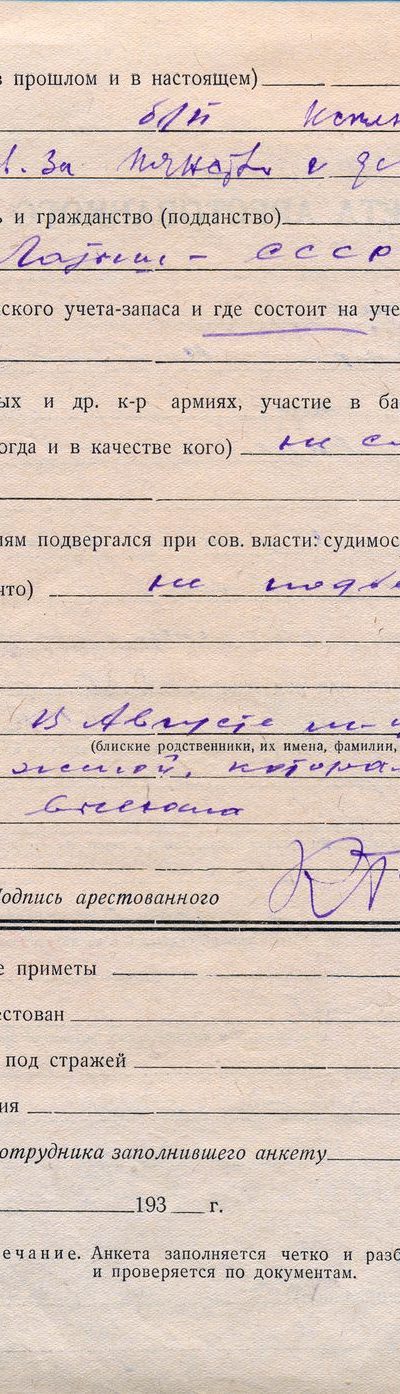 в прошлом и в настоящем)
б/п
За
и гражданство (подданство)
Латыш – СССР
ского учета-запаса и где состоит на уче
ых и др. к-р армиях, участие в ба
огда и в качестве кого) не сл
иям подвергался при сов. власти: судимос
что) не подв
В Августе
(блиские родственники, их имена, фамилии,
женой, котора
выехала
Подпись арестованного
е приметы
естован
под стражей
ия
отрудника заполнившего анкету
193 г.
ечание. Анкета заполняется четко и разб
и проверяется по документам.